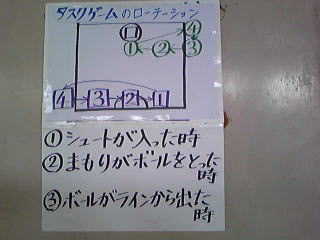 タスクゲームのローテーション
口 ④
① ② ③
4 3 2 1
①シュートが入った時
②まもりがボールをとった
時
③ボールがラインから出た
時